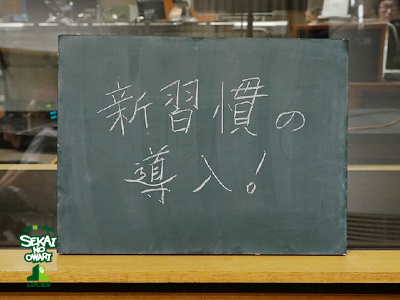 新習慣の
導入!
SEKAI
NO
OWARI